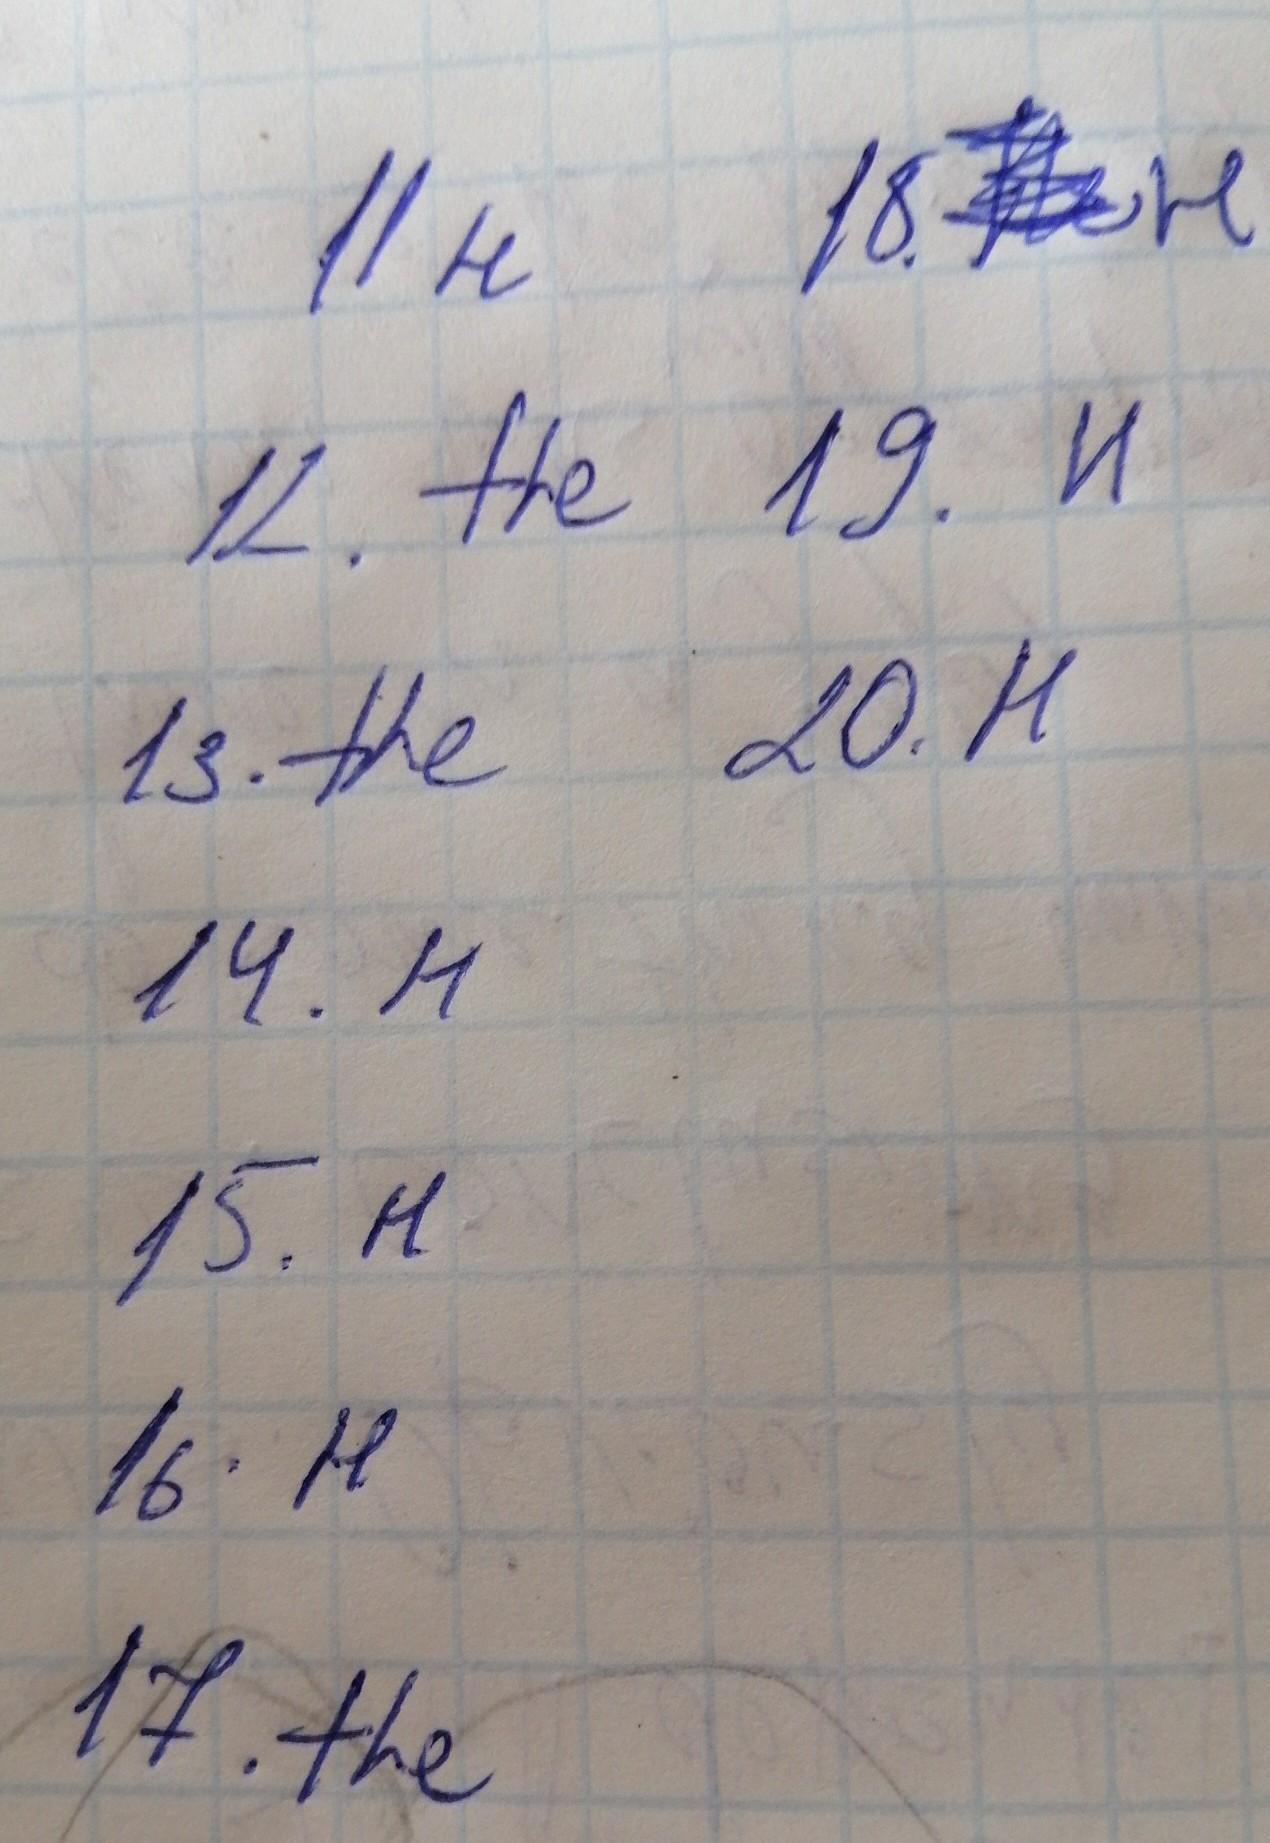 11 н
12. the
13. the
14. н
15. н
16. н
17. the
18. н
19. н
20. н